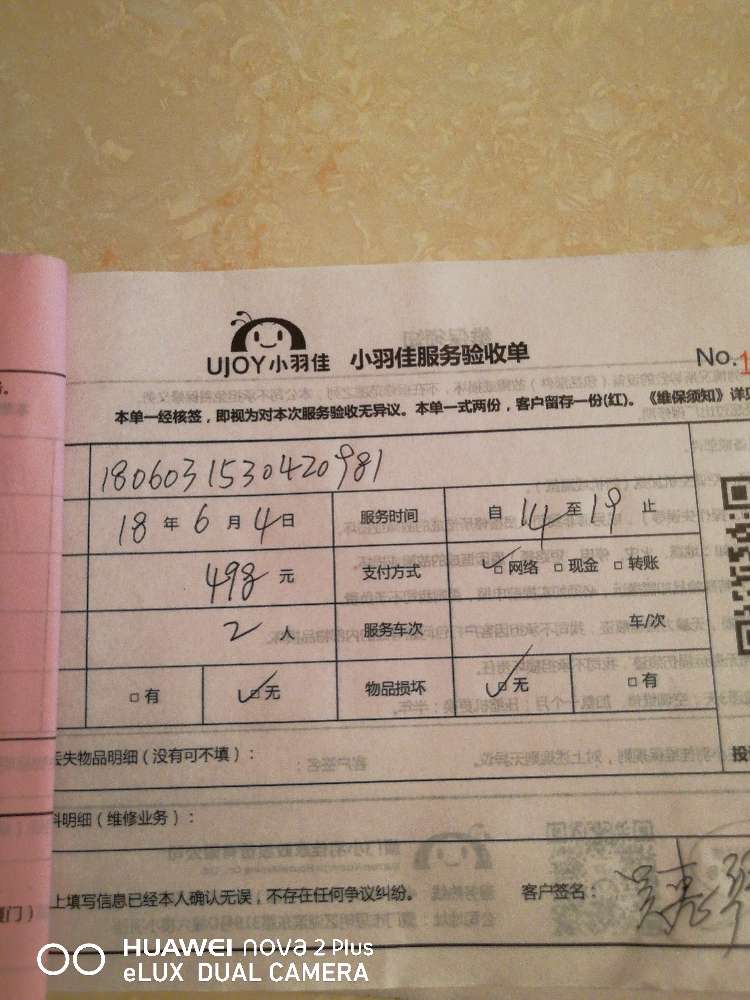 UJOY小羽佳 小羽佳服务验收单
No.1
本单一经核签，即视为对本次服务验收无异议。本单一式两份，客户留存一份(红)。《维保须知》详见
180603153042098１
18 年 6 月 4 日 服务时间 自 14 至 19 止
498 元 支付方式 网络 现金 转账
2 人 服务车次 车/次
有 无 物品损坏 无 有
失物品明细（没有可不填）：
投诉
料明细（维修业务）：
上填写信息已经本人确认无误，不存在任何争议纠纷。 客户签名：
厦门）
HUAWEI nova 2 Plus
eLUX DUAL CAMERA